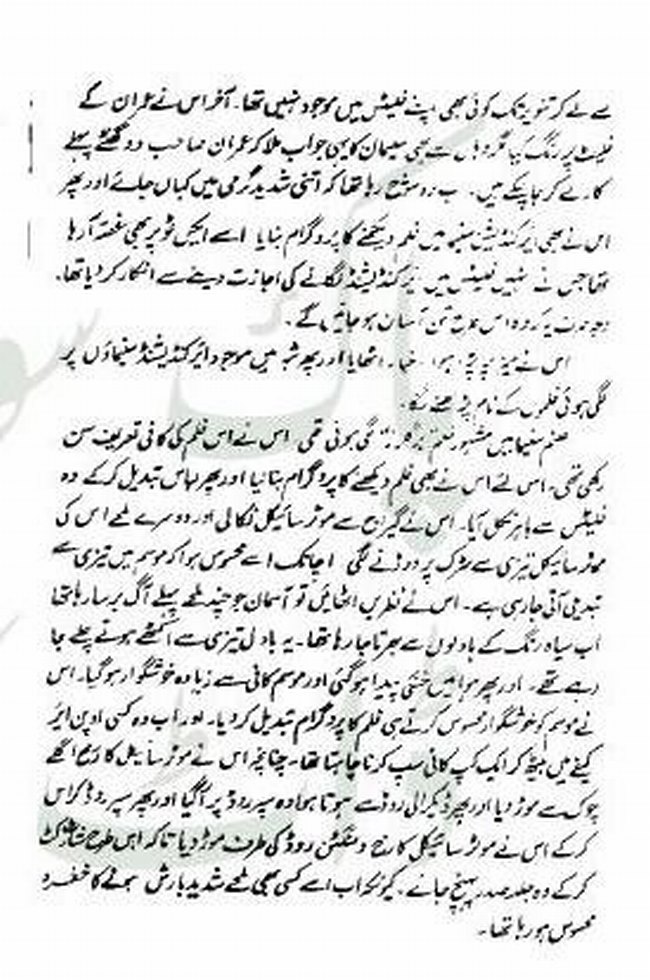 سے لے کر تنویر تک کوئی بھی اپنے فلیٹس میں موجود نہیں تھا۔ آخر اس نے عمران کے
فلیٹ پر رنگ کیا مگر وہاں سے بھی سلیمان کا یہی جواب ملا کہ عمران صاحب دو گھنٹے پہلے
کار لے کر جا چکے ہیں۔ اب وہ سوچ رہا تھا کہ اتنی شدید گرمی میں کہاں جائے اور پھر
اس نے بھی ایئر کنڈیشن سنیما میں فلم دیکھنے کا پروگرام بنایا اسے ایکس ٹو پر بھی غصہ آ رہا
تھا جس نے انہیں فلیٹس میں ایئر کنڈیشنڈ لگانے کی اجازت دینے سے انکار کر دیا تھا۔
وجہ صرف یہ کہ وہ اس طرح تن آسان ہو جائیں گے۔
اس نے میز پر پڑا ہوا اخبار اٹھایا اور پھر شہر میں موجود ایئر کنڈیشنڈ سنیماؤں پر
لگی ہوئی فلموں کے نام پڑھنے لگا۔
صنم سنیما میں مشہور فلم لگی ہوئی تھی اس نے اس فلم کی کافی تعریف سن
رکھی تھی۔ اس لئے اس نے بھی فلم دیکھنے کا پروگرام بنا لیا اور پھر لباس تبدیل کر کے وہ
فلیٹس سے باہر نکل آیا۔ اس نے گیراج سے موٹر سائیکل نکالی اور دوسرے لمحے اس کی
موٹر سائیکل تیزی سے سڑک پر دوڑنے لگی اچانک اسے محسوس ہوا کہ موسم میں تیزی سے
تبدیلی آتی جا رہی ہے۔ اس نے نظریں اٹھائیں تو آسمان جو چند لمحے پہلے آگ برسا رہا تھا
اب سیاہ رنگ کے بادلوں سے بھرتا جا رہا تھا۔ یہ بادل تیزی سے اکٹھے ہوتے چلے جا
رہے تھے۔ اور پھر ہوا میں خنکی پیدا ہو گئی اور موسم کافی سے زیادہ خوشگوار ہو گیا۔ اس
نے موسم کو خوشگوار محسوس کرتے ہی فلم کا پروگرام تبدیل کر دیا۔ اور اب وہ کسی اوپن ایئر
کیفے میں بیٹھ کر ایک کپ کافی سپ کرنا چاہتا تھا۔ چنانچہ اس نے موٹر سائیکل کا رخ اگلے
چوک سے موڑ دیا اور پھر روڈ سے ہوتا ہوا وہ سپر روڈ پر آ گیا اور پھر سپر روڈ کراس
کر کے اس نے موٹر سائیکل کا رخ ونگٹن روڈ کی طرف موڑ دیا تاکہ اس طرح شارٹ کٹ
کر کے وہ جلد صدر پہنچ جائے۔ کیونکہ اب اسے کسی بھی لمحے شدید بارش ہونے کا خطرہ
محسوس ہو رہا تھا۔